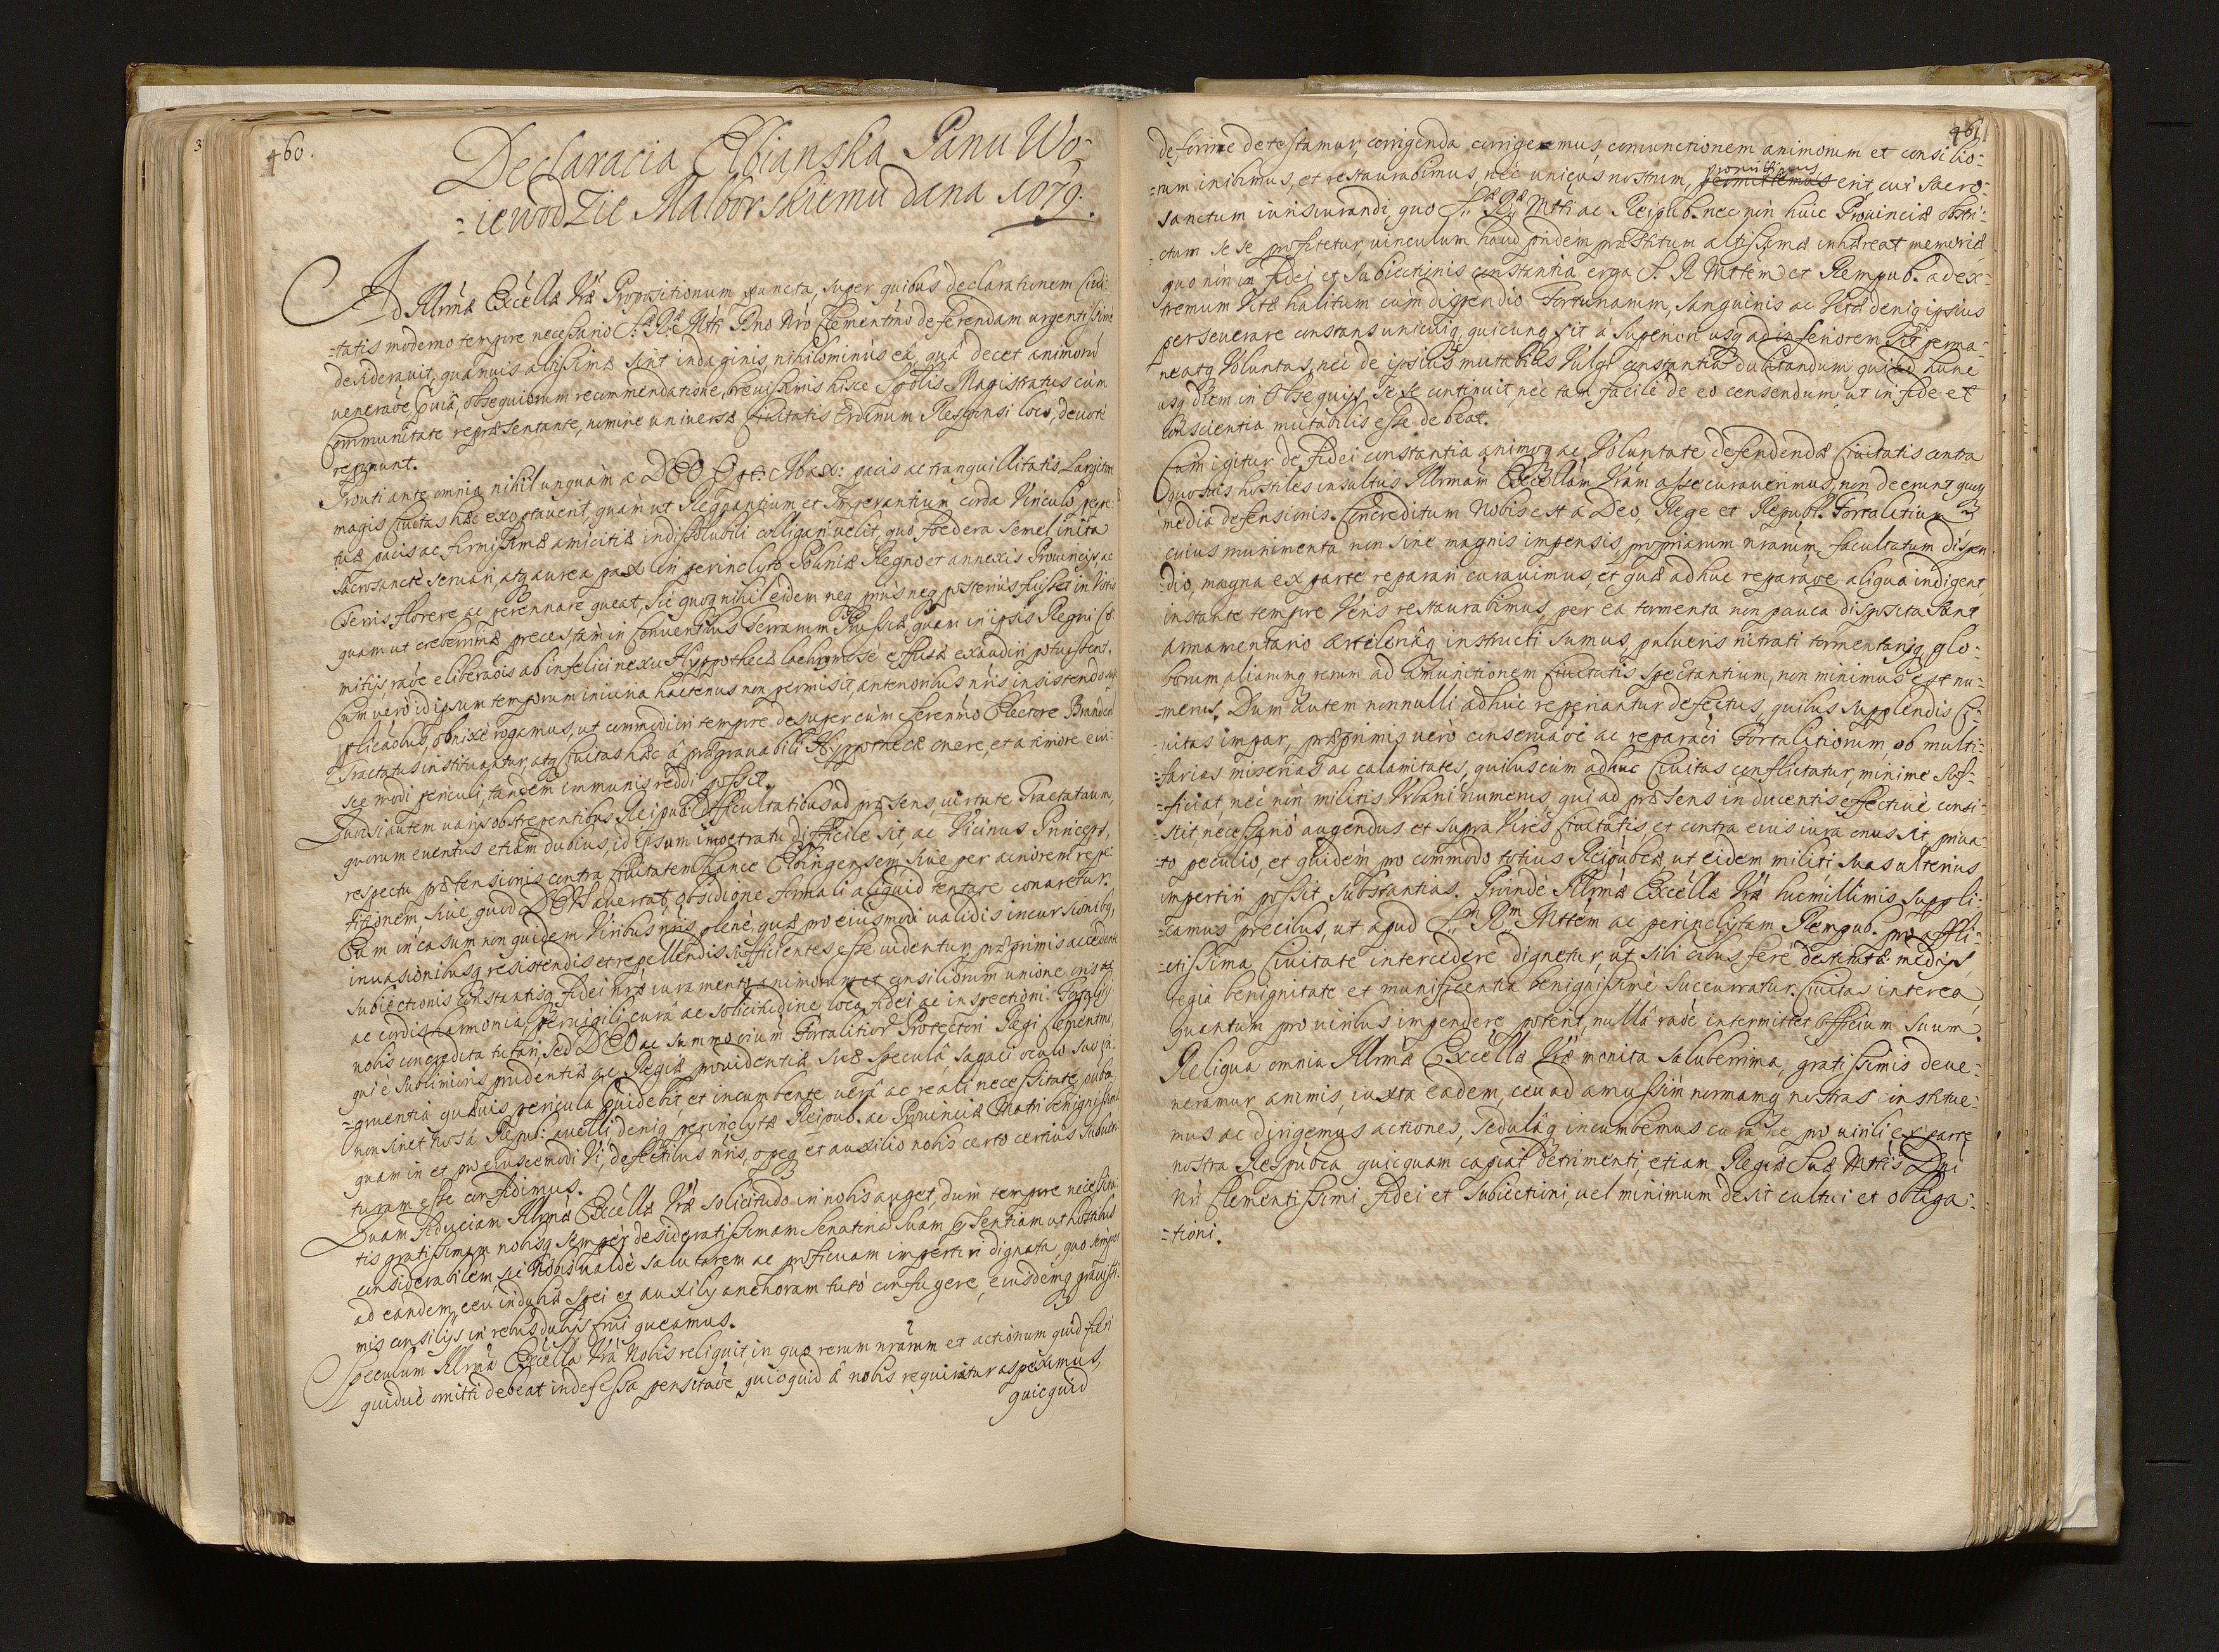 460.
Declaracia Elbianska Panu Wo-
-iewodzie Malborskiemu dana 1679.
Ad Illrmæ Excellæ Vræ Propositionum puncta, super quibus declarationem Civi-
-tatis moderno tempore necessario S.æ R.æ Mtti Dno Nro Clementmo deferendam urgentissime
desideravit, quamvis altissimæ sint indaginis, nihilominus eâ, quâ decet animorū
veneraõe, obsequiorum recommendatione, brevissimis hisce Magistratus cum
Communitate repræsentante, nomine universæ Civitatis Ordinum Responsi loco, devotè
reponunt.
Prouti ante omnia nihil unquam a DEO Opt: Max: pacis ac tranquillitatis Largitore
magis Civitas hæc exoptaverit, quàm ut Regnantium et Imperantium corda Vinculo perpe-
tuæ pacis ac firmissimæ amicitiæ indissolubili colligari velit, quo foedera semel inita
sacrosanctè servari, atq aurea pax in perinclyto Poloniæ Regno et annexis Provincijs ac
Terris florere ac perennare queat, sic quoq nihil eidem neq prius neq posterius fuisset in Votis
quam ut creberrimæ preces, tàm in Conventibus Terrarum Prussiæ quam in ipsis Regni Co-
mitijs, raõe eliberaõis ab infelici nexu Hyppothecæ lachrymosè effusæ exaudiri potuissent.
Cum verò id ipsum temporum iniuria hactenus non permisit, antenoribus nris insistendo sup-
plicaõbus, obnixè rogamus, ut commodiori tempore desuper cùm Serenmo Electore Brandeb
Tractatus instituantur, atq Civitas hæc â prægravabili Hyppothecæ onere, et a timore eius-
ce modi periculi, tandem immunis reddi possit.
Quodsi autem varijs obstrepentibus Reipub. difficultatibus ad præsens, virtute Tractatuum,
quorum eventus etiam dubius, id ipsum impetratu difficile sit, ac Vicinus Princeps,
respectu prætensionis contra Civitatem hance Elbingensem, sive per acriorem repe-
titionem, sive, quod DEUS avertat, obsidione formali aliquid tentare conaretur.
Eum in casum non quidem Viribus nris plenè, quæ pro eiusmodi validis incursionibq,
invasionibusq resistendis et repellendis sufficientes esse videntur, præprimis accedente
subiectionis constantisq fidei nræ iuramento animorum et consiliorum unione
ac cordis harmonia, pervigili curâ ac solicitudine loca fidei ac inspectioni
nobis concredita tutari, sed DEO ac summo Fortalitior Protectori Regi Clementmo,
qui è sublimioris prudentiæ ac Regiæ providentiæ suæ speculâ, sagaci oculo
-gruentia quævis pericula prævidebit, et incumbente verâ ac reali necessitate
non sinet nos â Repub: avelli denique perinclytæ Reipub. ac Provinciæ Matri benignissimæ
quam in et pro eiuscemodi Vi, defectibus nris, opeq et auxilio nobis certo certius subven-
turam esse confidimus.
Quam fiduciam Illrmæ Excellæ Vræ solicitudo in nobis auget, dum tempore necessita-
tis gratissimam nobisq semper desideratissimam Senatoria suam præsentiam ut hostibus
considerabilem, sic Nobis valdè salutarem ac proficuam impertiri dignata, quo semper
ad eandem, ceu indubiæ spei et auxilij anchoram tutò confugere, eiusdemq gravissi-
mis consilijs in rebus dubijs frui queamus.
Speculum Illrma Excella Vra Nobis reliquit, in quo rerum nrarum et actionum quid fieri
quidve omitti debeat indefessa pensitaõe, quicquid â nobis requiratur aspeximus,
quicquid
461
deforme detestamur, corrigenda corrigemus, coniunctionem animorum et consilio-
-rum inibimus, et restaurabimus, nec unicus nostrum, promittimus permittemus erit, cui sacro-
sanctum iurisiurandi, quo S.æ R.æ Mtti ac Reipub. nec non huic Provinciæ obstri-
-ctum se se profitetur, vinculum haud pridem præstitum altissimæ inhæreat memoriæ
quo non in fidei et subiectionis constantia erga S. R. Mttem et Rempub. ad ex-
-tremum Vitæ halitum cùm dispendio Fortunarum, sanguinis ac Vitæ deniq ipsius
perseverare constans unicuiq, quicunq sit â superiori usq ad inferiorem sit perma-
neatq Voluntas, nec de ipsius mutabilis Vulgi constantia dubitandum, qui ad hunc
usq diem in Obsequijs se se continuit, nec tam facilè de eo censendum, ut in fide et
conscientia mutabilis esse debeat.
Cum igitur de fidei constantia animoq ac Voluntate defendendæ Civitatis contra
quosvis hostiles insultus Illrmam Excellam Vram assecuraverimus, non deerunt quoq
media defensionis. Concreditum Nobis est a Deo, Rege et Republ. Fortalitium
cuius munimenta non sine magnis impensis, propriarum nrarum facultatum dispen
-dio, magna ex parte reparari curavimus, et quæ adhuc reparaõe aliqua indigent,
instante tempore Veris restaurabimus, per ea tormenta non pauca disposita sunt
armamentario Artelleriâq instructi sumus, pulveris nitrati tormentarijq, glo-
borum, aliarumq rerum ad amunitionem Civitatis spectantium, non minimus est nu-
-merus. Dum autem nonnulli adhuc reperiantur defectus, quibus supplendis Ci-
-vitas impar, præprimis verò conservaõe ac reparaci Fortalitiorum, ob multi-
-farias miserias ac calamitates, quibuscùm adhuc Civitas conflictatur, minime suf-
-ficiat, nec non militis Urbani numerus, qui ad præsens in ducentis effective consi-
-stit, necessariò augendus et supra Vires Civitatis, et contra eius iura onus sit, priva-
-to peculio, et quidèm pro commodo totius Reipubcæ, ut eidem militi, suas ulterius
impertiri possit substantias. Proindè Illrmæ Excellæ Vræ humillimis suppli-
-camus precibus, ut apud S.m R.m Mttem ac perinclytam Rempub. pro affli-
-ctissima Civitate intercedere dignetur, ut sibi omnibus ferè destitutæ medijs,
regia benignitate et munificentia benignissimè succurratur. Civitas interea
quantum pro viribus impendere poterit, nullâ raõe intermittet officium suum.
Reliqua omnia Illrmæ Excellæ Vræ monita saluberrima, gratissimis dene-
neramur animis, iuxta eadem, ceu ad amussim normamq nostras institue-
mus ac dirigemus actiones, sedulâq incumbemus curâ ne pro virili ex parte
nostra Respubca quicquam capiat detrimenti, etiam Regiæ Suæ Mttis Dni
Nri Clementissimi fidei et subiectioni, vel minimum desit cultui et obliga-
-tioni.